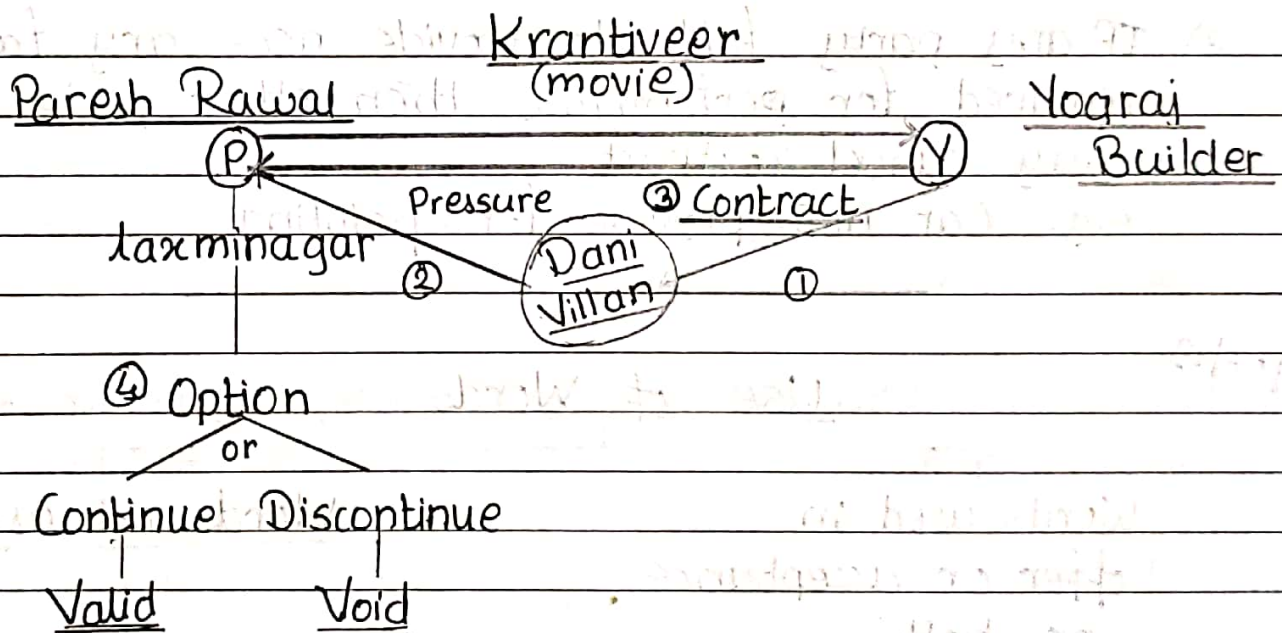 Krantiveer
(movie)
Paresh Rawal
Yograj
Builder
P
Y
Pressure
③ Contract
Laxminagar
②
Dani
Villan
①
④ Option
or
Continue Discoptinue
Valid Void